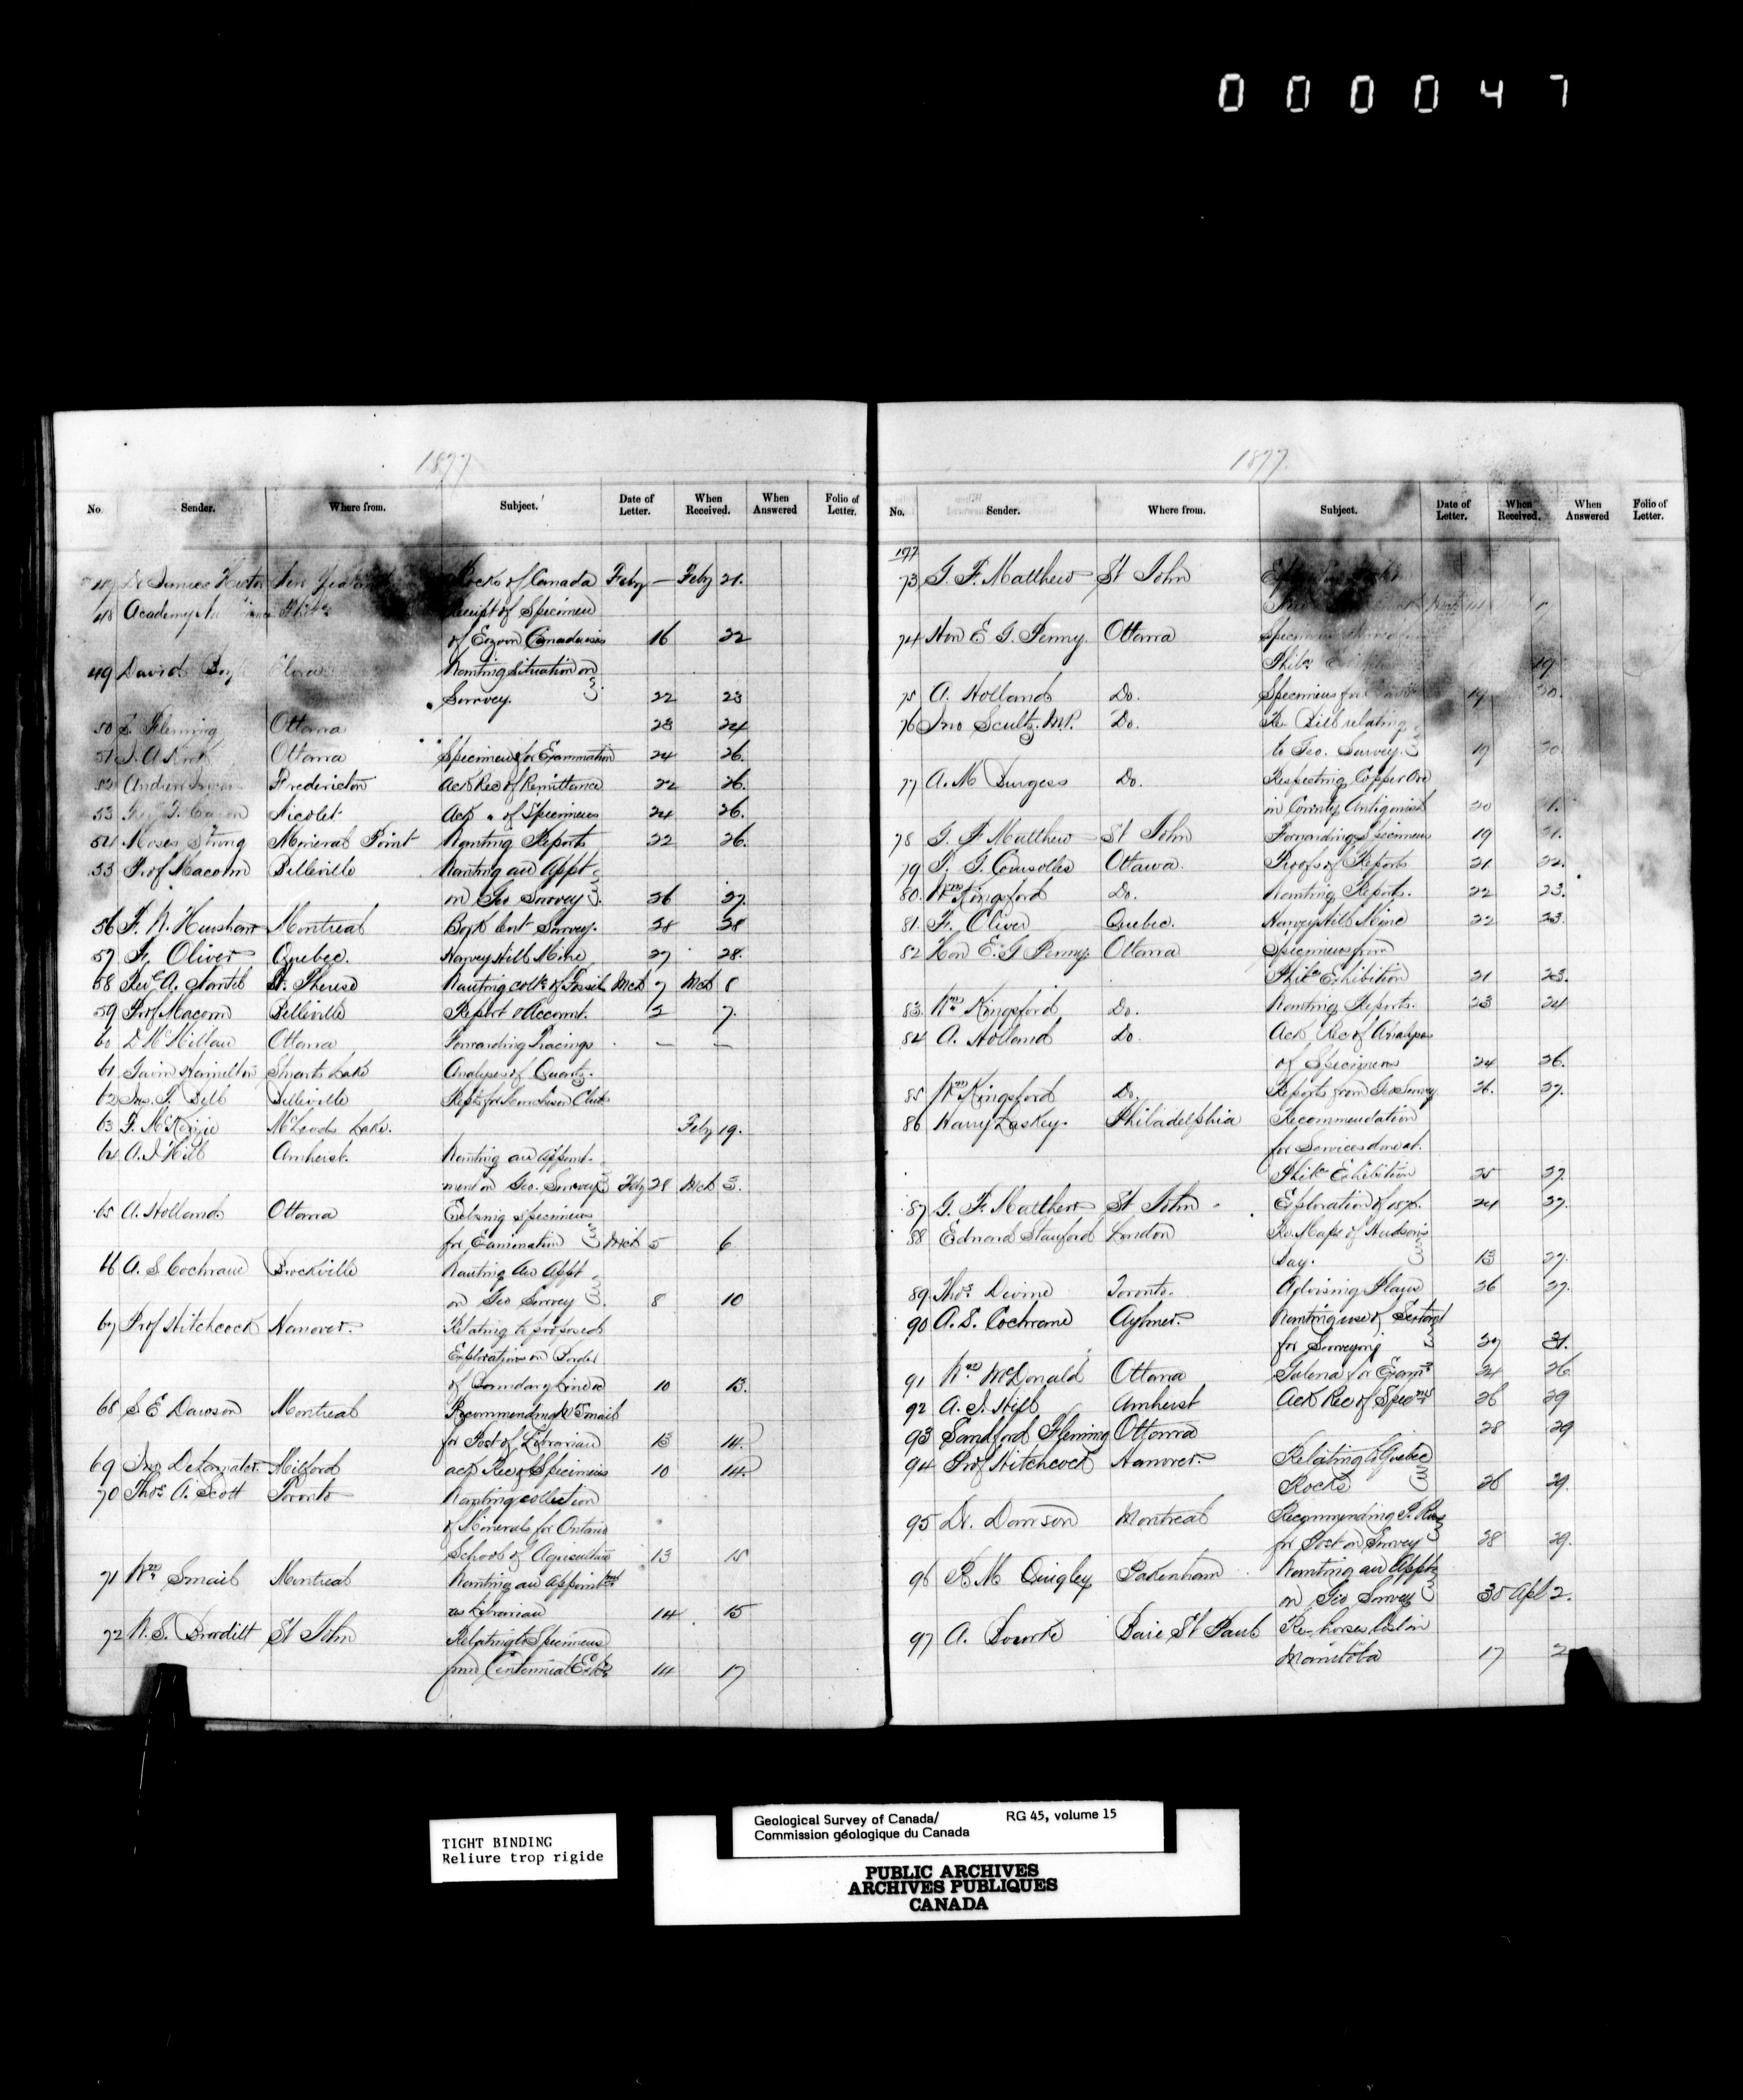 000047
1877
No. Sender. Where from. Subject. Date of Letter. When Received. When Answered Folio of Letter.
47 Dr James Hector New Zealand Rocks of Canada Feby — Feby 21.
48 Academy Phila Receipt of Specimen
of Eozoon Canadensis 16 22
49 David Boyle Elora Wanting situation on
Survey. 22 23
50 S. Fleming Ottawa 23 24
51 Ottawa Specimens for Examination 24 26.
52 Andrew Fredericton Ack Rec of Remittance 22 26.
53 Nicolet Ack " of Specimens 24 26.
54 Moses Strong Mineral Point Wanting Reports 22 26.
55 Prof Macoun Belleville Wanting an Appt
on Geo Survey 26 27.
56 F. W. Henshaw Montreal Book lent Survey. 28 28
57 Fr. Oliver Quebec. Harvey Hill Mine 27 28.
58 Rev. A. Nantel St. Therese Wanting coltn of Fossils Mch 7 Mch 8
59 Prof Macoun Belleville Report & Account. 2 7.
60 D McMillan Ottawa Forwarding Tracings — —
61 Gavin Hamilton Stuarts Lake Analysis of Quartz.
62 Jas. T. Bell Belleville Repts for Murchison Club
63 F. McKenzie McLeods Lake. Feby 19.
64 A. J Hill Amherst. Wanting an appoint-
ment on Geo. Survey Feby 28 Mch 3.
65 A. Holland Ottawa Enclosing specimens
for Examination Mch 5 6
66 A. S. Cochrane Brockville Wanting an Appt
on Geo Survey 8 10
67 Prof Hitchcock Hanover. Relating to proposed
Explorations on Border
of Boundary Line 10 13.
68 S. E Dawson Montreal Recommending W Smail
for Post of Librarian 13 14.
69 Jno DeLamater Milford ack Rec of Specimens 10 14.
70 Thos. A. Scott Toronto Wanting collection
of Minerals for Ontario
School of Agriculture 13 15
71 Wm Smail Montreal Wanting an Appointmt
as Librarian 14 15
72 St John Relating to Specimens
from Centennial Exhn 14 17
1877.
No. Sender. Where from. Subject. Date of Letter. When Received. When Answered Folio of Letter.
1877
73 G. F. Matthew St John
74 Hon E. G. Penny. Ottawa Specimens
Phila 19
75 A. Holland Do. Specimens for 19 20.
76 Jno Scultz M.P. Do. Re- Bill relating
to Geo. Survey. 19 20
77 A. M Burgess Do. Respecting Copper Ore
in County Antigonish 20 21.
78 G. F Matthew St John Forwarding Specimens 19 21.
79 Ottawa. Proofs of Reports 21 22.
80. Wm Kingsford Do. Wanting Reports. 22 23.
81. Fr. Oliver Quebec. Harvey Hill Mine 22 23.
82 Hon E. G Penny. Ottawa Specimens from
Phila Exhibition 21 23.
83. Wm Kingsford Do. Wanting Reports. 23 24
84 A. Holland Do. Ack Rec of Analyses
of Specimens 24 26.
85 Wm Kingsford Do. Reports from Geo Survey 26. 27.
86 Harry Laskey. Philadelphia Recommendation
for Services done at.
Phila Exhibition 25 27.
87 G. F. Matthew St John Exploration of 1876. 24 27.
88 Edward Stanford London Re. Maps of Hudsons
Bay. 13 27.
89 Thos. Devine Toronto. Advising Plans 26 27.
90 A. S. Cochrane Aylmer. Wanting use of Sextant
for Surveying 29 31.
91 Wm McDonald Ottawa Galena for Examn 24 26
92 A. J. Hill Amherst Ack Rec of Specms 26 29
93 Sandford Fleming Ottawa 28 29
94 Prof Hitchcock Hanover. Relating to Quebec
Rocks 26 29.
95 Dr. Dawson Montreal Recommending
for Post on Survey 28 29.
96 R M Quigley Pakenham Wanting an Appt
on Geo Survey 30 Apl 2.
97 A. Baie St Paul Re- horses lost in
Manitoba 17 2
TIGHT BINDING
Reliure trop rigide
Geological Survey of Canada/ RG 45, volume 15
Commission géologique du Canada
PUBLIC ARCHIVES
ARCHIVES PUBLIQUES
CANADA